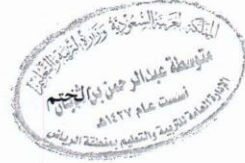 المملكة العربية السعودية وزارة التربية والتعليم
متوسطة عبدالرحمن بن
الختم
أسست عام ١٤٢٧هـ
الإدارة العامة للتربية والتعليم بمنطقة الرياض